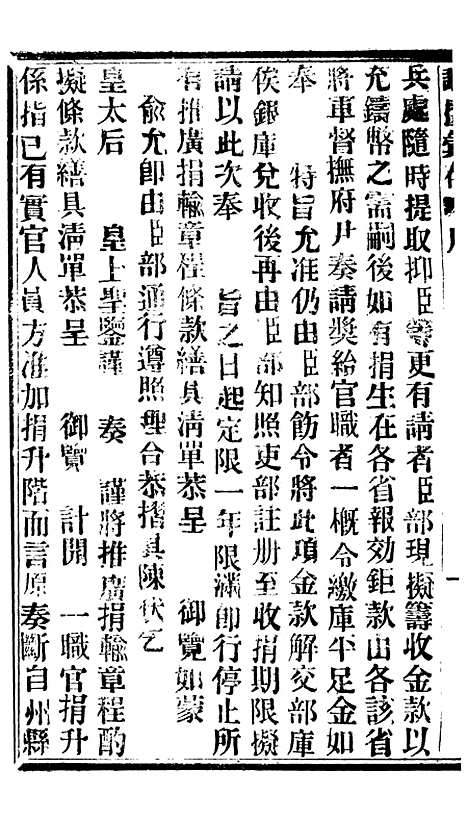 兵處隨時提取抑臣等更有請者臣部現擬籌收金款以
充鑄幣之需嗣後如有捐生在各省報効鉅款由各該省
將軍督撫府尹奏請獎給官職者一概令繳庫平足金如
奉　特旨允准仍由臣部飭令將此項金款解交部庫
俟銀庫兌收後再由臣部知照吏部註册至收捐期限擬
請以此次奉　旨之日起定限一年限滿卽行停止所
有推廣捐輸章程條款繕具清單恭呈　御覽如蒙
俞允卽由臣部通行遵照理合恭摺具陳伏乞
皇太后　皇上聖鑒謹　奏　謹將推廣捐輸章程酌
擬條款繕具清單恭呈　御覽　計開　一職官捐升
係指已有實官人員方准加捐升階而言原奏斷自州縣